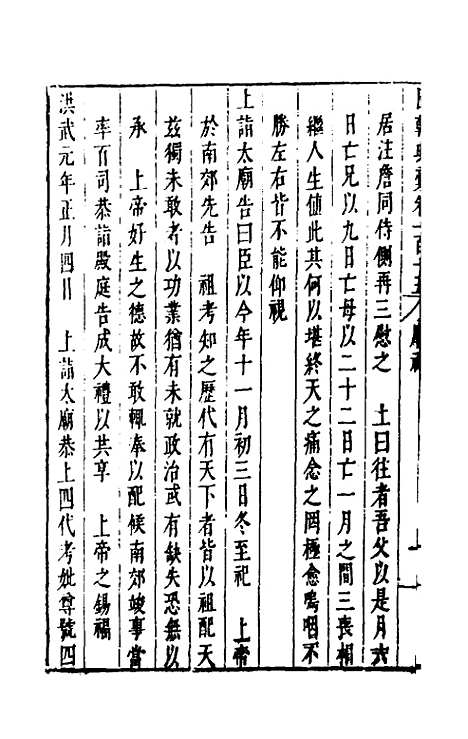 居注詹同侍側再三慰之　上曰往者吾父以是月六
日亡兄以九日亡母以二十二日亡一月之間三喪相
繼人生值此其何以堪終天之痛念之罔極愈嗚咽不
勝左右皆不能仰視
上詣太廟告曰臣以今年十一月初三日冬至祀　上帝
於南郊先告　祖考知之歷代有天下者皆以祖配天
茲獨未敢者以功業猶有未就政治或有缺失恐無以
承　上帝好生之德故不敢輒奉以配候南郊竣事當
率百司恭詣殿庭告成大禮以共享　上帝之錫福
洪武元年正月四日　上詣太廟恭上四代考妣尊號四